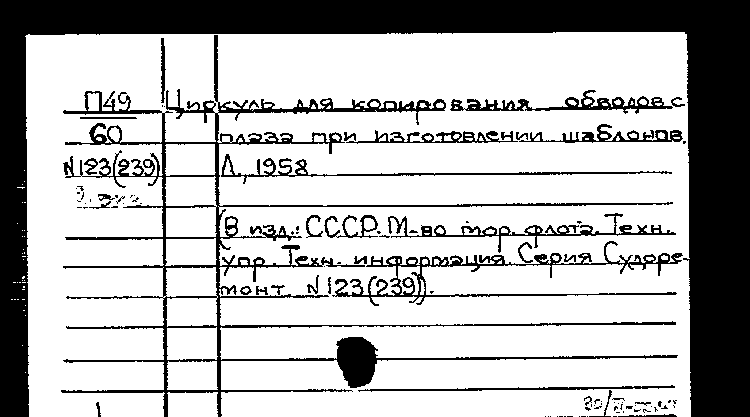 П49 Циркуль для копирования обводов с
60 плаза при изготовлении шаблонов.
N123(239) Л., 1958
(В изд.: СССР. М-во мор. флота. Техн.
упр. Техн. информация. Серия Судоре-
монт. N123(239)).